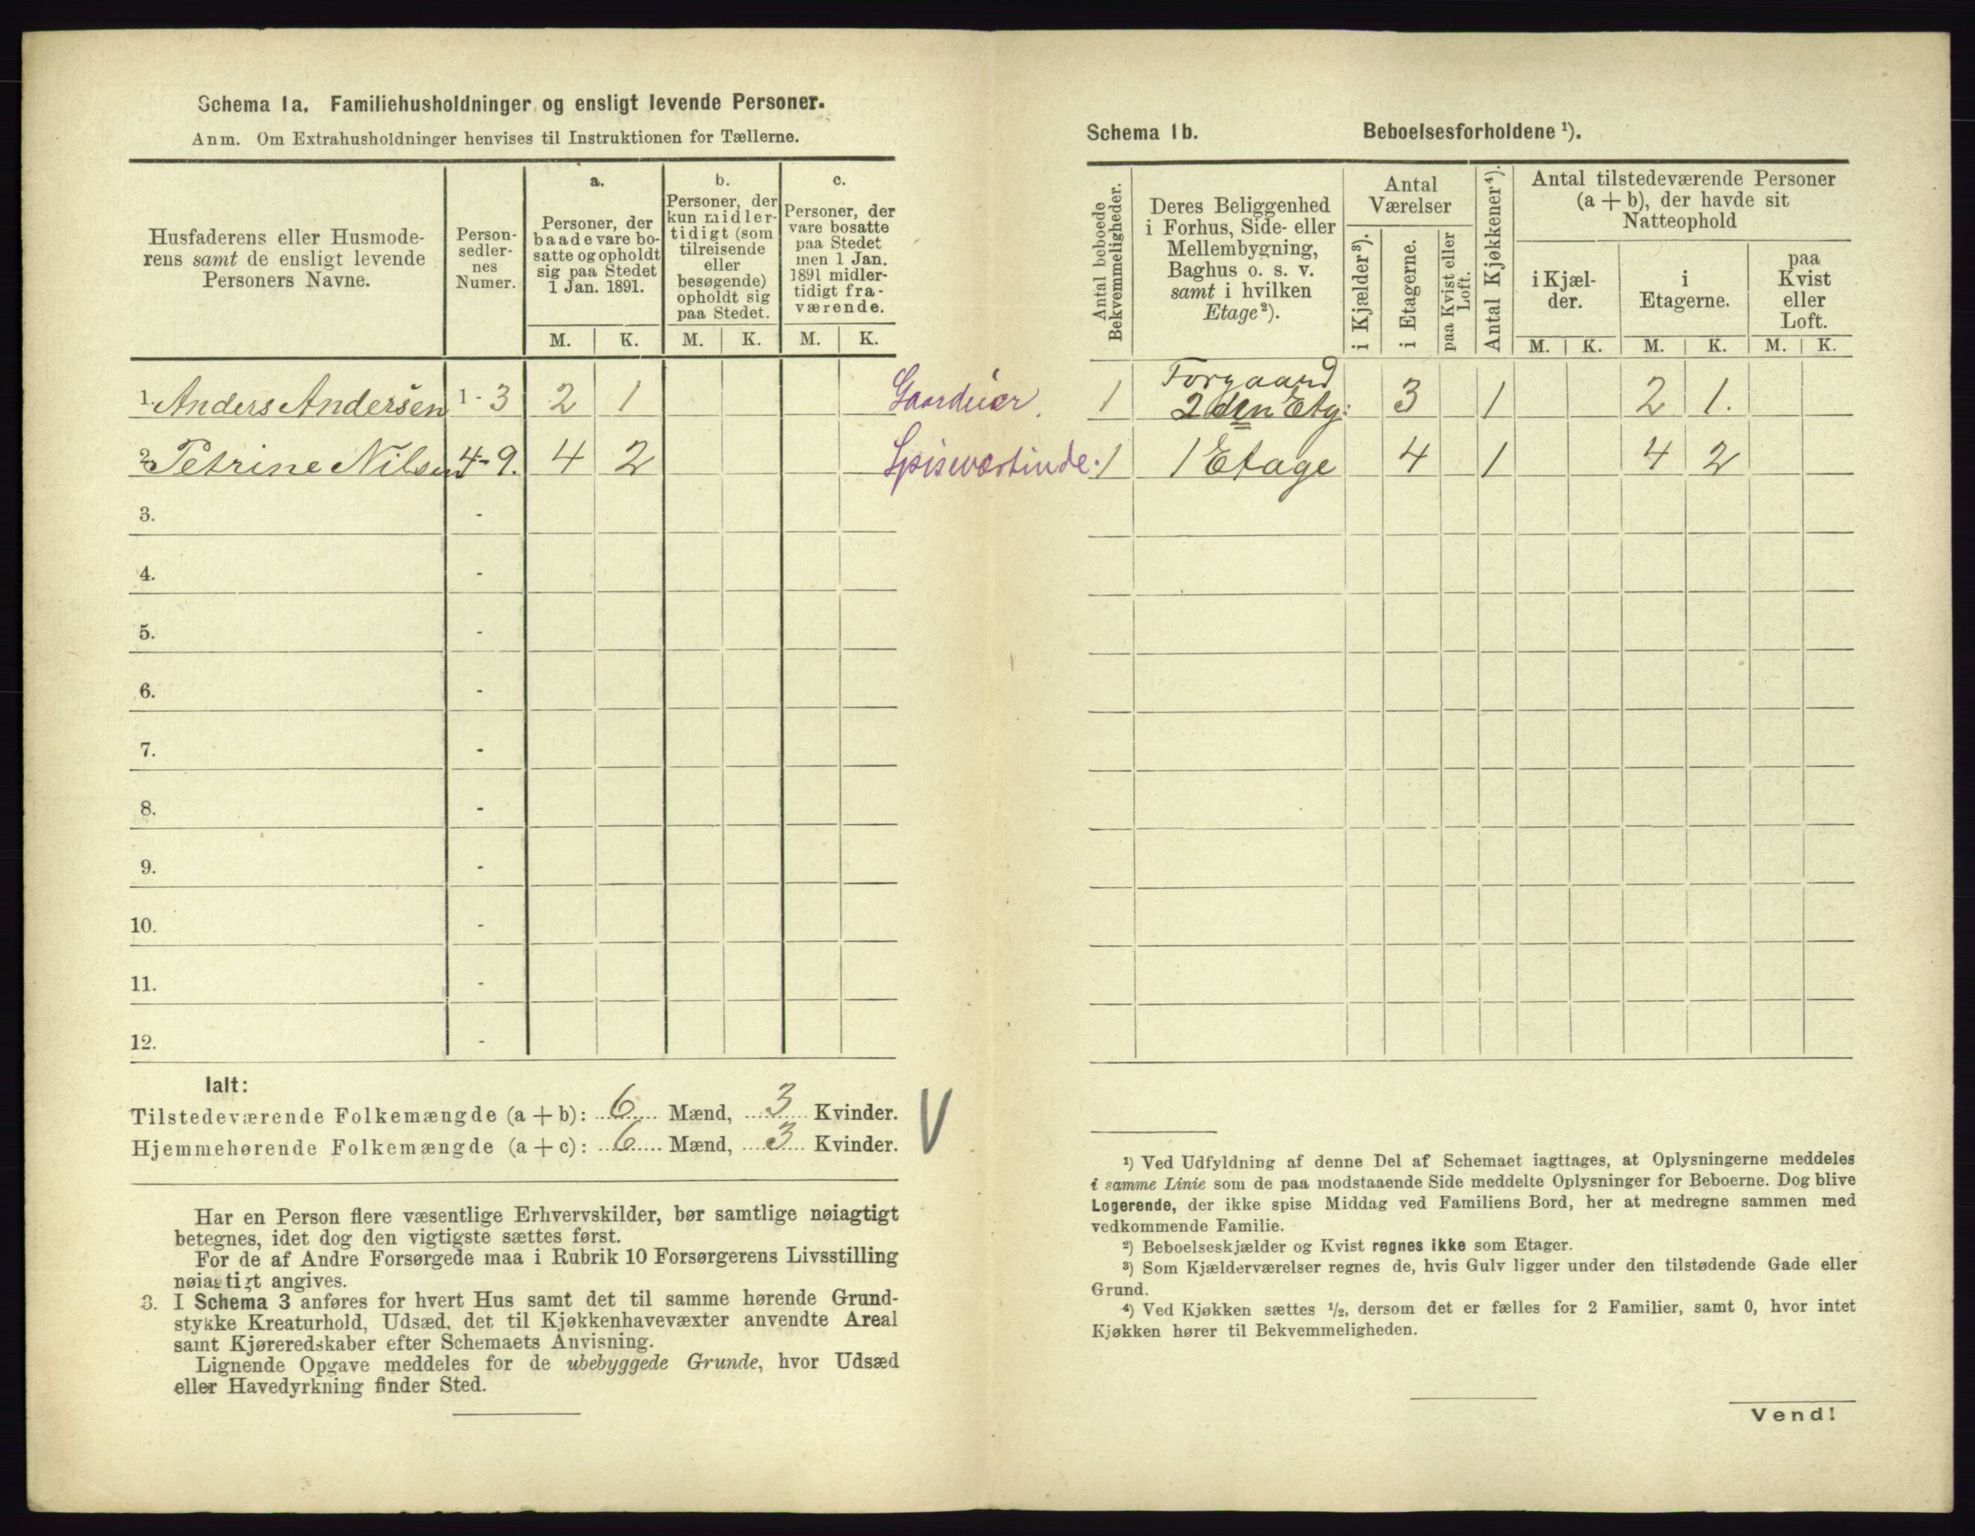 Schema 1a. Familiehusholdninger og ensligt levende Personer.
Anm. Om Extrahusholdninger henvises til Instruktionen for Tællerne.
Husfaderens eller Husmode-
rens samt de ensligt levende
Personers Navne.
Person-
sedler-
nes
Numer.
a.
Personer, der
baade vare bo-
satte og opholdt
sig paa Stedet
1 Jan. 1891.
b.
Personer, der
kun midler-
tidigt (som
tilreisende
eller
besøgende)
opholdt sig
paa Stedet.
c.
Personer, der
vare bosatte
paa Stedet
men 1 Jan.
1891 midler-
tidigt fra-
værende.
M. K. M. K. M. K.
1. Anders Andersen 1-3 2 1
2. Petrine Nilsen 4-9. 4 2 Spiseværtinde.
3. -
4. -
5. -
6. -
7. -
8. -
9. -
10. -
11. -
12. -
Ialt:
Tilstedeværende Folkemængde (a + b): 6 Mænd, 3 Kvinder.
Hjemmehørende Folkemængde (a + c): 6 Mænd, 3 Kvinder.
V
Har en Person flere væsentlige Erhvervskilder, bør samtlige nøiagtigt
betegnes, idet dog den vigtigste sættes først.
For de af Andre Forsørgede maa i Rubrik 10 Forsørgerens Livsstilling
nøiagtigt angives.
3. I Schema 3 anføres for hvert Hus samt det til samme hørende Grund-
stykke Kreaturhold, Udsæd, det til Kjøkkenhavevæxter anvendte Areal
samt Kjøreredskaber efter Schemaets Anvisning.
Lignende Opgave meddeles for de ubebyggede Grunde, hvor Udsæd
eller Havedyrkning finder Sted.
Schema 1b. Beboelsesforholdene ¹).
Antal beboede
Bekvemmeligheder.
Deres Beliggenhed
i Forhus, Side- eller
Mellembygning,
Baghus o. s. v.
samt i hvilken
Etage²).
Antal
Værelser
i Kjælder³).
i Etagerne.
paa Kvist eller
Loft.
Antal Kjøkkener⁴).
Antal tilstedeværende Personer
(a + b), der havde sit
Natteophold
i Kjæl-
der.
i
Etagerne.
paa
Kvist
eller
Loft.
M. K. M. K. M. K.
1 Forgaard
2den Etg: 3 1 2 1.
1 1 Etage 4 1 4 2
¹) Ved Udfyldning af denne Del af Schemaet iagttages, at Oplysningerne meddeles
i samme Linie som de paa modstaaende Side meddelte Oplysninger for Beboerne. Dog blive
Logerende, der ikke spise Middag ved Familiens Bord, her at medregne sammen med
vedkommende Familie.
²) Beboelseskjælder og Kvist regnes ikke som Etager.
³) Som Kjælderværelser regnes de, hvis Gulv ligger under den tilstødende Gade eller
Grund.
⁴) Ved Kjøkken sættes ½, dersom det er fælles for 2 Familier, samt 0, hvor intet
Kjøkken hører til Bekvemmeligheden.
Vend!